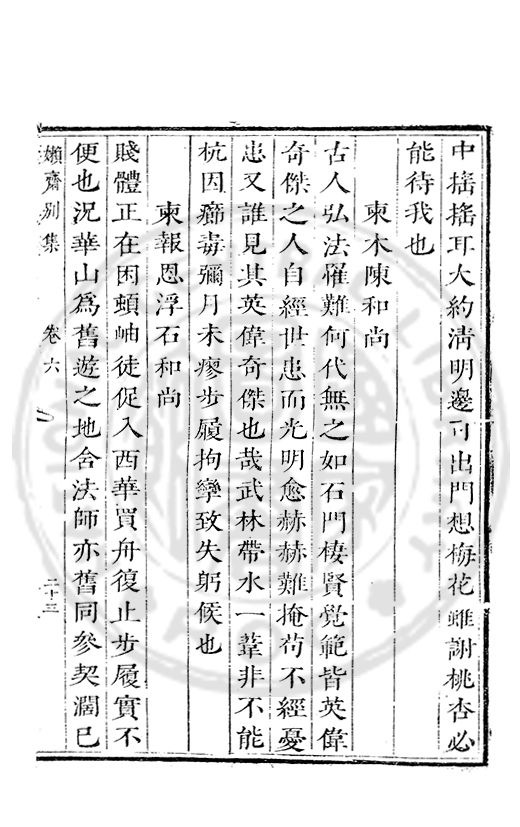 中搖搖耳大約清明邊可出門想梅花雖謝桃杏必
能待我也
柬木陳和尚
古人弘法罹難何代無之如石門棲賢覺範皆英偉
奇傑之人自經世患而光明愈赫赫難掩苟不經憂
患又誰見其英偉奇傑也哉武林帶水一葦非不能
杭因癤毒彌月未瘳步履拘攣致失躬候也
柬報恩浮石和尚
賤體正在困頓岫徒促入西華買舟復止步履實不
便也況華山爲舊遊之地含法師亦舊同參契濶已
嬾齋別集
卷六
二十三